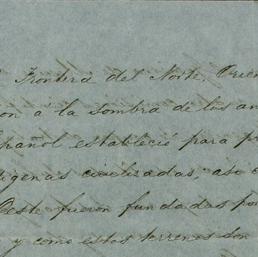 Frontera del Norte, Orien
on á la sombra de los an
spañol estableció para p
ígenas civilizadas, así c
Oeste fueron fundadas po
y como estos terrenos son